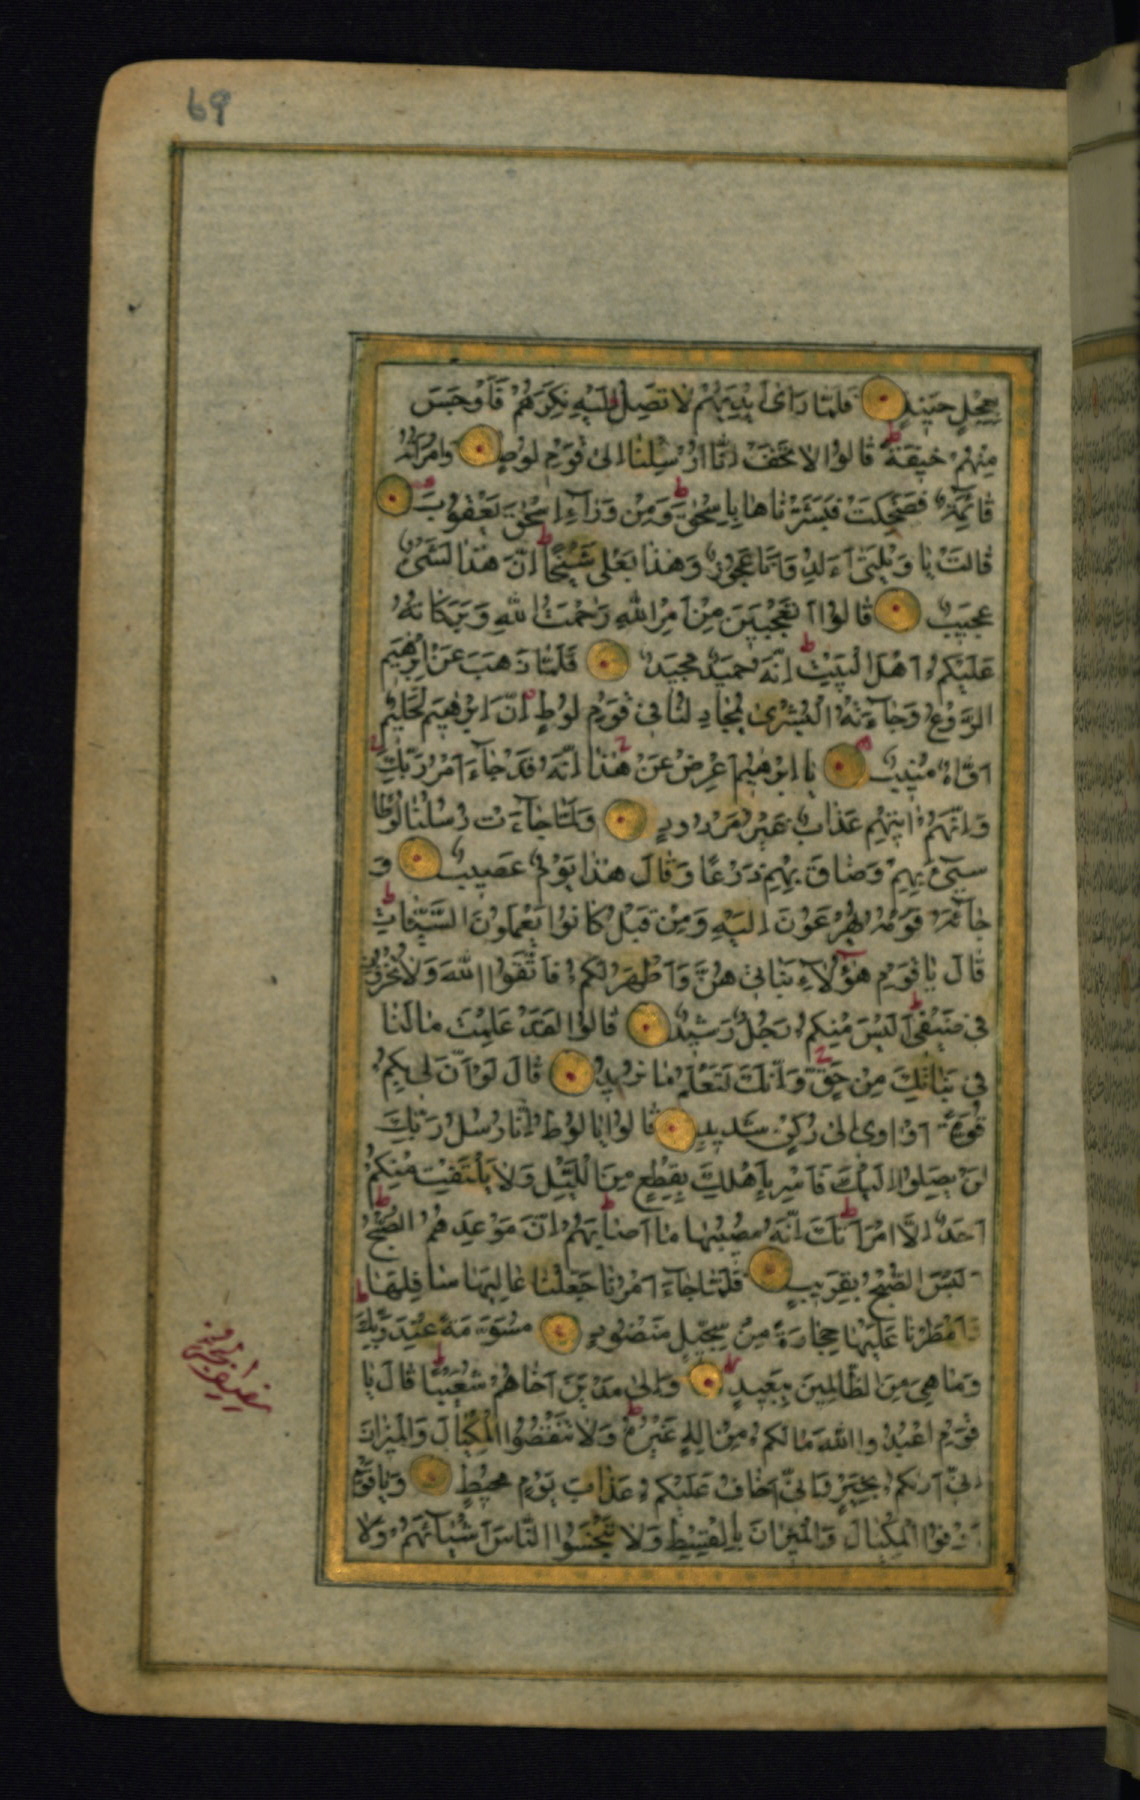 69
بِعِجْلٍ حَنِيذٍ فَلَمَّا رَاى اَيْدِيَهُمْ لا تَصِلُ اِلَيْهِ نَكِرَهُمْ وَاَوْجَسَ
مِنْهُمْ خِيفَةً قالُوا لا تَخَفْ اِنّا اُرْسِلْنا اِلى قَوْمِ لُوطٍ وَامْرَاَتُهُ
قائِمَةٌ فَضَحِكَتْ فَبَشَّرْناها بِاِسْحقَ وَمِنْ وَرآءِ اِسْحقَ يَعْقُوبَ
قالَتْ يا وَيْلَتى ءَاَلِدُ وَاَنَا عَجُوزٌ وَهذا بَعْلى شَيْخًا اِنَّ هذا لَشَىْءٌ
عَجِيبٌ قالُوا اَتَعْجَبِينَ مِنْ اَمْرِ اللهِ رَحْمَتُ اللهِ وَبَرَكاتُهُ
عَلَيْكُمْ اَهْلَ الْبَيْتِ اِنَّهُ حَمِيدٌ مَجِيدٌ فَلَمّا ذَهَبَ عَنْ اِبْرهِيمَ
الرَّوْعُ وَجآءَتْهُ الْبُشْرى يُجادِلُنا فى قَوْمِ لُوطٍ اِنَّ اِبْرهِيمَ لَحَلِيمٌ
اَوّاهٌ مُنِيبٌ يا اِبْرهِيمُ اَعْرِضْ عَنْ هذا اِنَّهُ قَدْ جآءَ اَمْرُ رَبِّكَ
وَاِنَّهُمْ اتِيهِمْ عَذابٌ غَيْرُ مَرْدُودٍ وَلَمّا جآءَتْ رُسُلُنا لُوطًا
سِىءَ بِهِمْ وَضاقَ بِهِمْ ذَرْعًا وَقالَ هذا يَوْمٌ عَصِيبٌ وَ
جآئَهُ قَوْمُهُ يُهْرَعُونَ اِلَيْهِ وَمِنْ قَبْلُ كانُوا يَعْمَلُونَ السَّيِّئاتِ
قالَ يا قَوْمِ هؤُلآءِ بَناتى هُنَّ اَطْهَرُ لَكُمْ فَاتَّقُوا اللهَ وَلا تُخْزُونِ
فى ضَيْفى اَلَيْسَ مِنْكُمْ رَجُلٌ رَشِيدٌ قالُوا لَقَدْ عَلِمْتَ ما لَنا
فى بَناتِكَ مِنْ حَقٍّ وَاِنَّكَ لَتَعْلَمُ ما نُرِيدُ قالَ لَوْ اَنَّ لى بِكُمْ
قُوَّةً اَوْ اوى اِلى رُكْنٍ شَدِيدٍ قالُوا يا لُوطُ اِنّا رُسُلُ رَبِّكَ
لَنْ يَصِلُوا اِلَيْكَ فَاَسْرِ بِاَهْلِكَ بِقِطْعٍ مِنَ اللَّيْلِ وَلا يَلْتَفِتْ مِنْكُمْ
اَحَدٌ اِلَّا امْرَاَتَكَ اِنَّهُ مُصِيبُها ما اَصابَهُمْ اِنَّ مَوْعِدَهُمُ الصُّبْحُ
اَلَيْسَ الصُّبْحُ بِقَرِيبٍ فَلَمّا جآءَ اَمْرُنا جَعَلْنا عالِيَها سافِلَها
وَاَمْطَرْنا عَلَيْها حِجارَةً مِنْ سِجِّيلٍ مَنْضُودٍ مُسَوَّمَةً عِنْدَ رَبِّكَ
وَما هِىَ مِنَ الظّالِمِينَ بِبَعِيدٍ وَاِلى مَدْيَنَ اَخاهُمْ شُعَيْبًا قالَ يا
قَوْمِ اعْبُدُوا اللهَ ما لَكُمْ مِنْ اِلهٍ غَيْرُهُ وَلا تَنْقُصُوا الْمِكْيالَ وَالْمِيزانَ
اِنّى اَريكُمْ بِخَيْرٍ وَاِنّى اَخافُ عَلَيْكُمْ عَذابَ يَوْمٍ مُحِيطٍ وَيا قَوْمِ
اَوْفُوا الْمِكْيالَ وَالْمِيزانَ بِالْقِسْطِ وَلا تَبْخَسُوا النّاسَ اَشْيآئَهُمْ وَلا